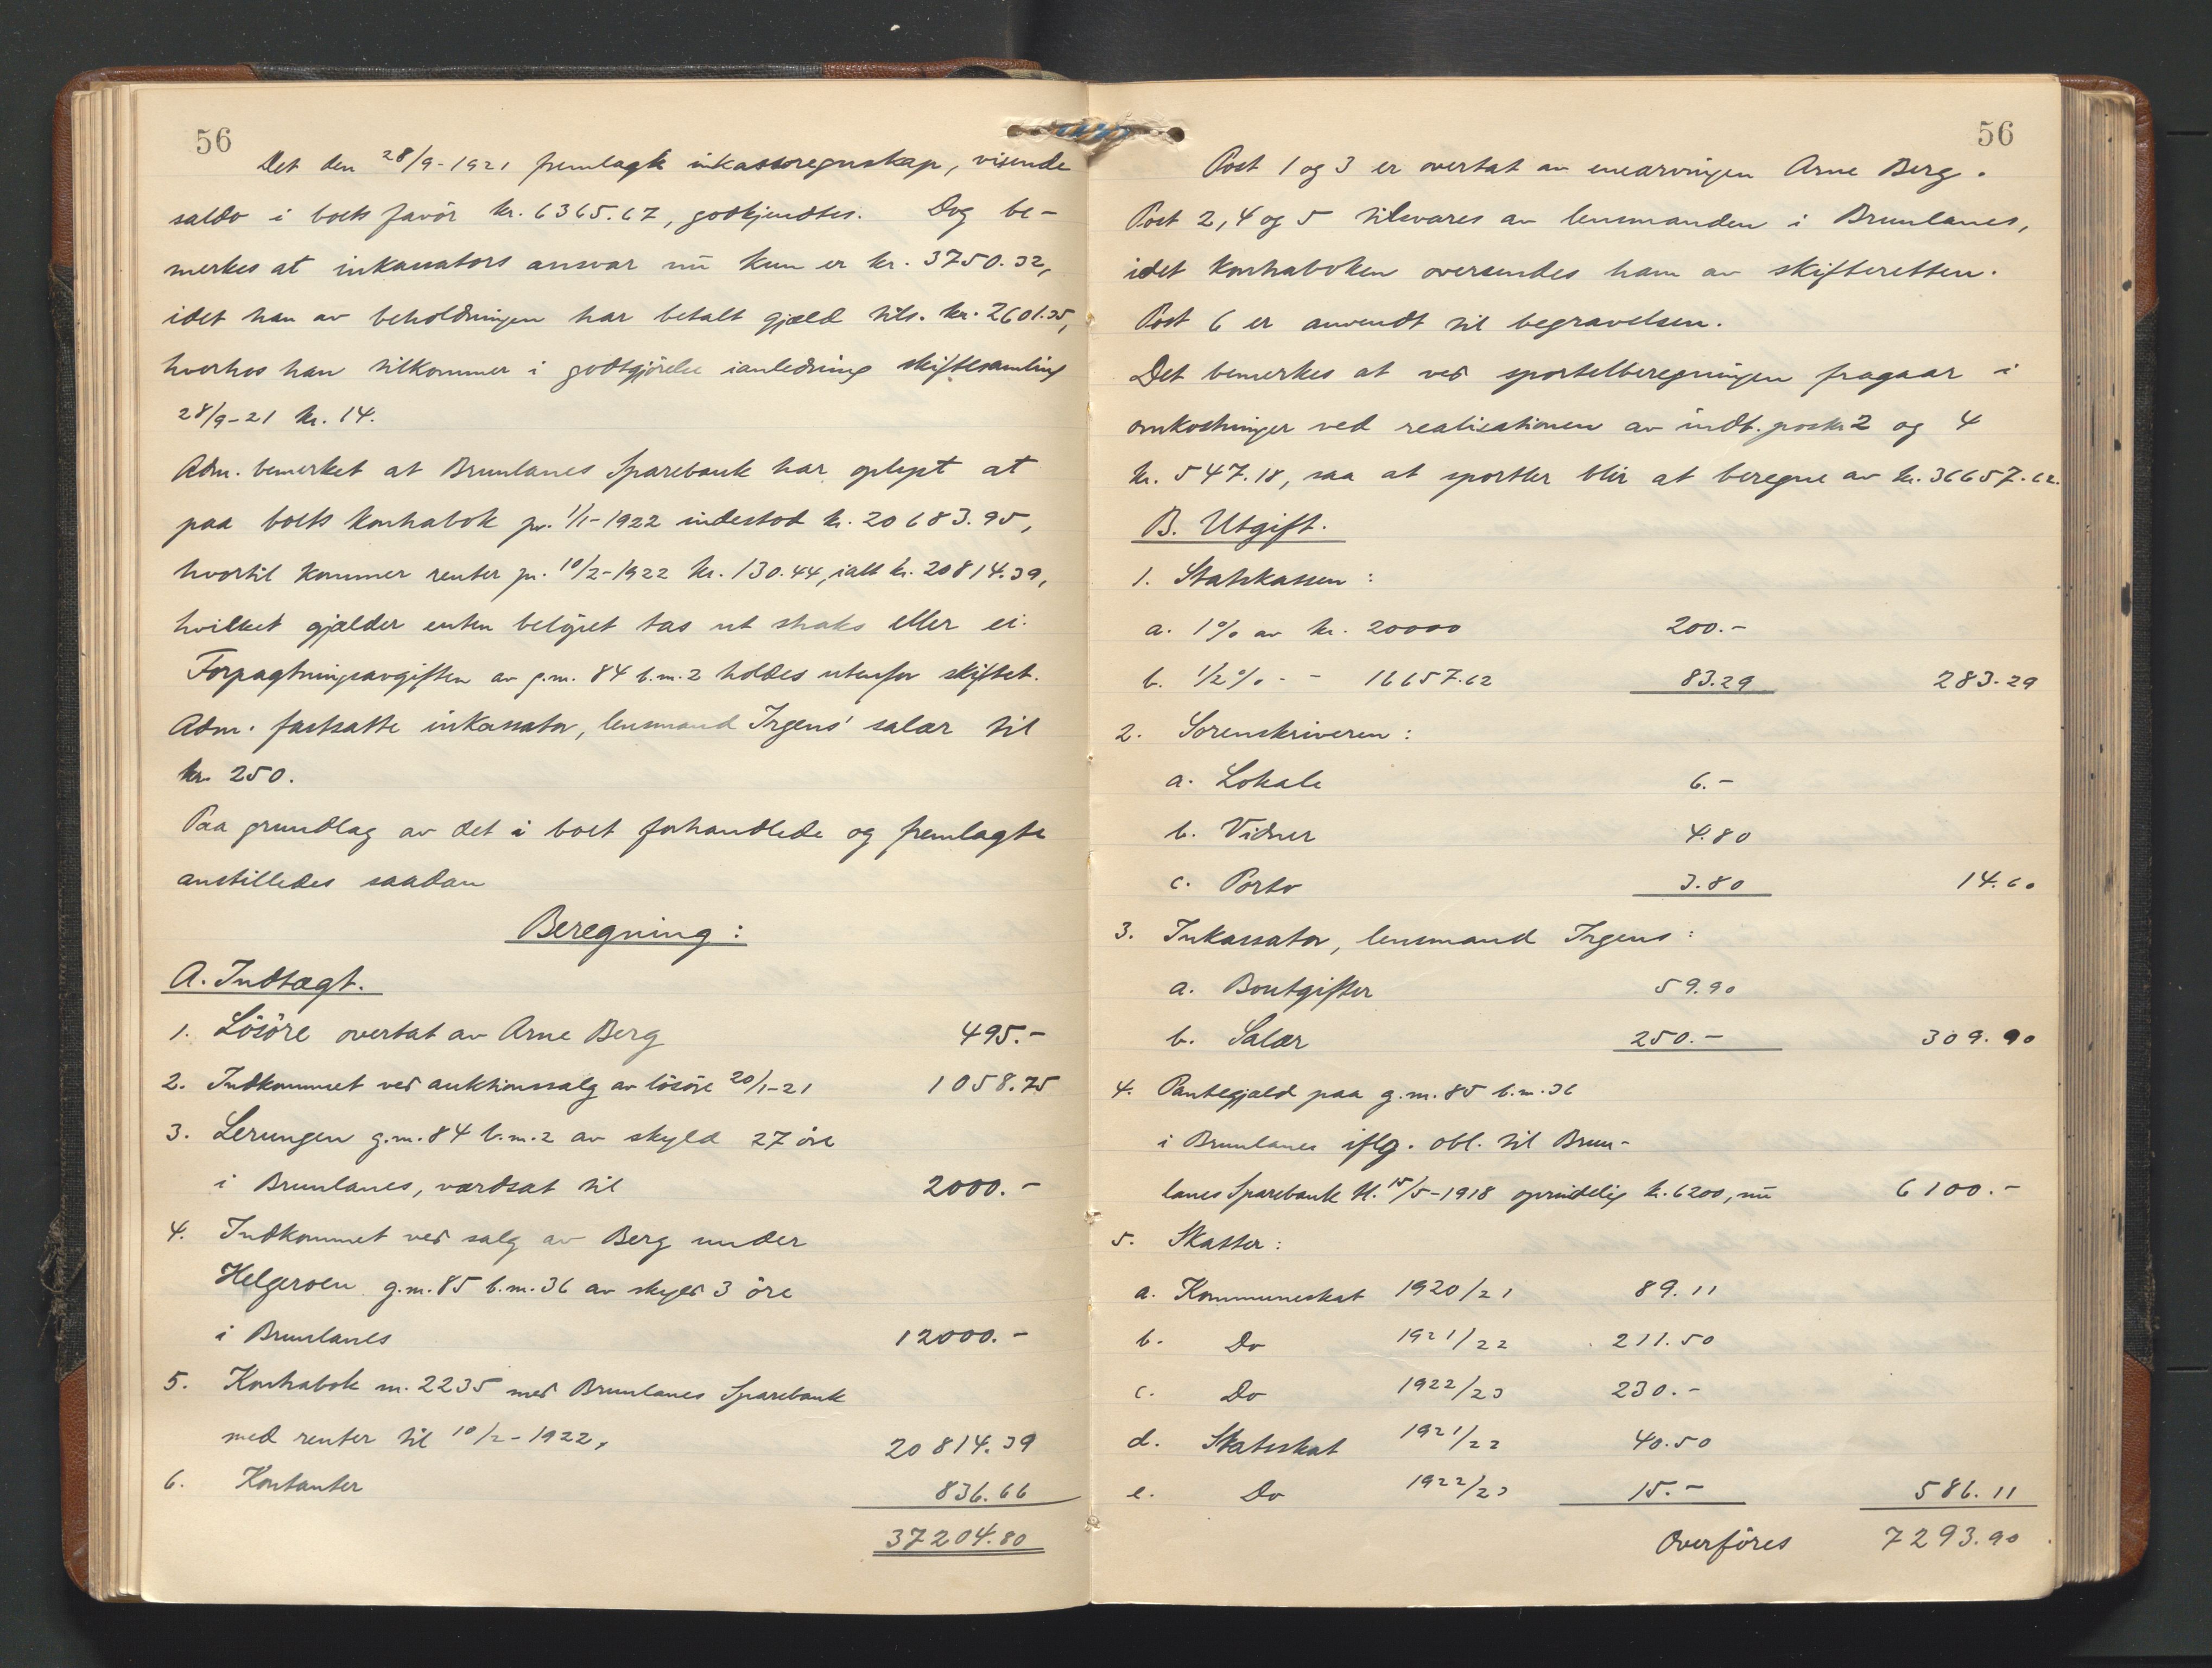 56
Det den 28/9-1921 fremlagte inkassoregnskap, visende
saldo i boets favör kr. 6365.67, godkjendtes. Dog be-
merkes at inkassators ansvar nu kun er kr. 3750.32,
idet han av beholdningen har betalt gjæld tils. kr. 2601.35,
hvorhos han tilkommer i godtgjörelse ianledning skiftesamling
28/9-21 kr. 14.
Adm. bemerket at Brunlanes Sparebank har oplyst at
paa boets kontrabok pr. 1/1-1922 indestod kr. 20683.95,
hvortil kommer renter pr. 10/2-1922 kr. 130.44, ialt kr. 20814.39,
hvilket gjælder enten belöpet tas ut straks eller ei.
Forpagtningsavgiften av g.nr. 84 b.nr. 2 holdes utenfor skiftet.
Adm. fastsatte inkassator, lensmand Irgens' salær til
kr. 250.
Paa grundlag av det i boet forhandlede og fremlagte
anstilledes saadan
Beregning:
A. Indtægt.
1. Lösöre overtat av Arne Berg 495.-
2. Indkommet ved auktionssalg av lösöre 20/1-21 1058.75
3. Lerungen g.nr. 84 b.nr. 2 av skyld 27 öre
i Brunlanes, værdsat til 2000.-
4. Indkommet ved salg av Berg under
Helgeroen g.nr. 85 b.nr. 36 av skyld 3 öre
i Brunlanes 12000.-
5. Kontrabok nr. 2235 med Brunlanes Sparebank
med renter til 10/2-1922, 20814.39
6. Kontanter 836.66
37204.80
56
Post 1 og 3 er overtat av enearvingen Arne Berg.
Post 2, 4 og 5 tilsvares av lensmanden i Brunlanes,
idet kontraboken oversendes ham av skifteretten.
Post 6 er anvendt til begravelsen.
Det bemerkes at ved sportelberegningen fragaar i
omkostninger ved realisationen av indt. poster 2 og 4
kr. 547.18, saa at sportler blir at beregne av kr. 36657.62.
B. Utgift.
1. Statskassen:
a. 1% av kr. 20000 200.-
b. 1/2% - - 16657.62 83.29 283.29
2. Sorenskriveren:
a. Lokale 6.-
b. Vidner 4.80
c. Porto 3.80 14.60
3. Inkassator, lensmand Irgens:
a. Boutgifter 59.90
b. Salær 250.- 309.90
4. Pantegjæld paa g.nr. 85 b.nr. 36
i Brunlanes iflg. obl. til Brun-
lanes Sparebank tl. 15/5-1918 oprindelig kr. 6200, nu 6100.-
5. Skatter:
a. Kommuneskat 1920/21 89.11
b. Do 1921/22 211.50
c. Do 1922/23 230.-
d. Statsskat 1921/22 40.50
e. Do 1922/23 15.- 586.11
Overföres 7293.90